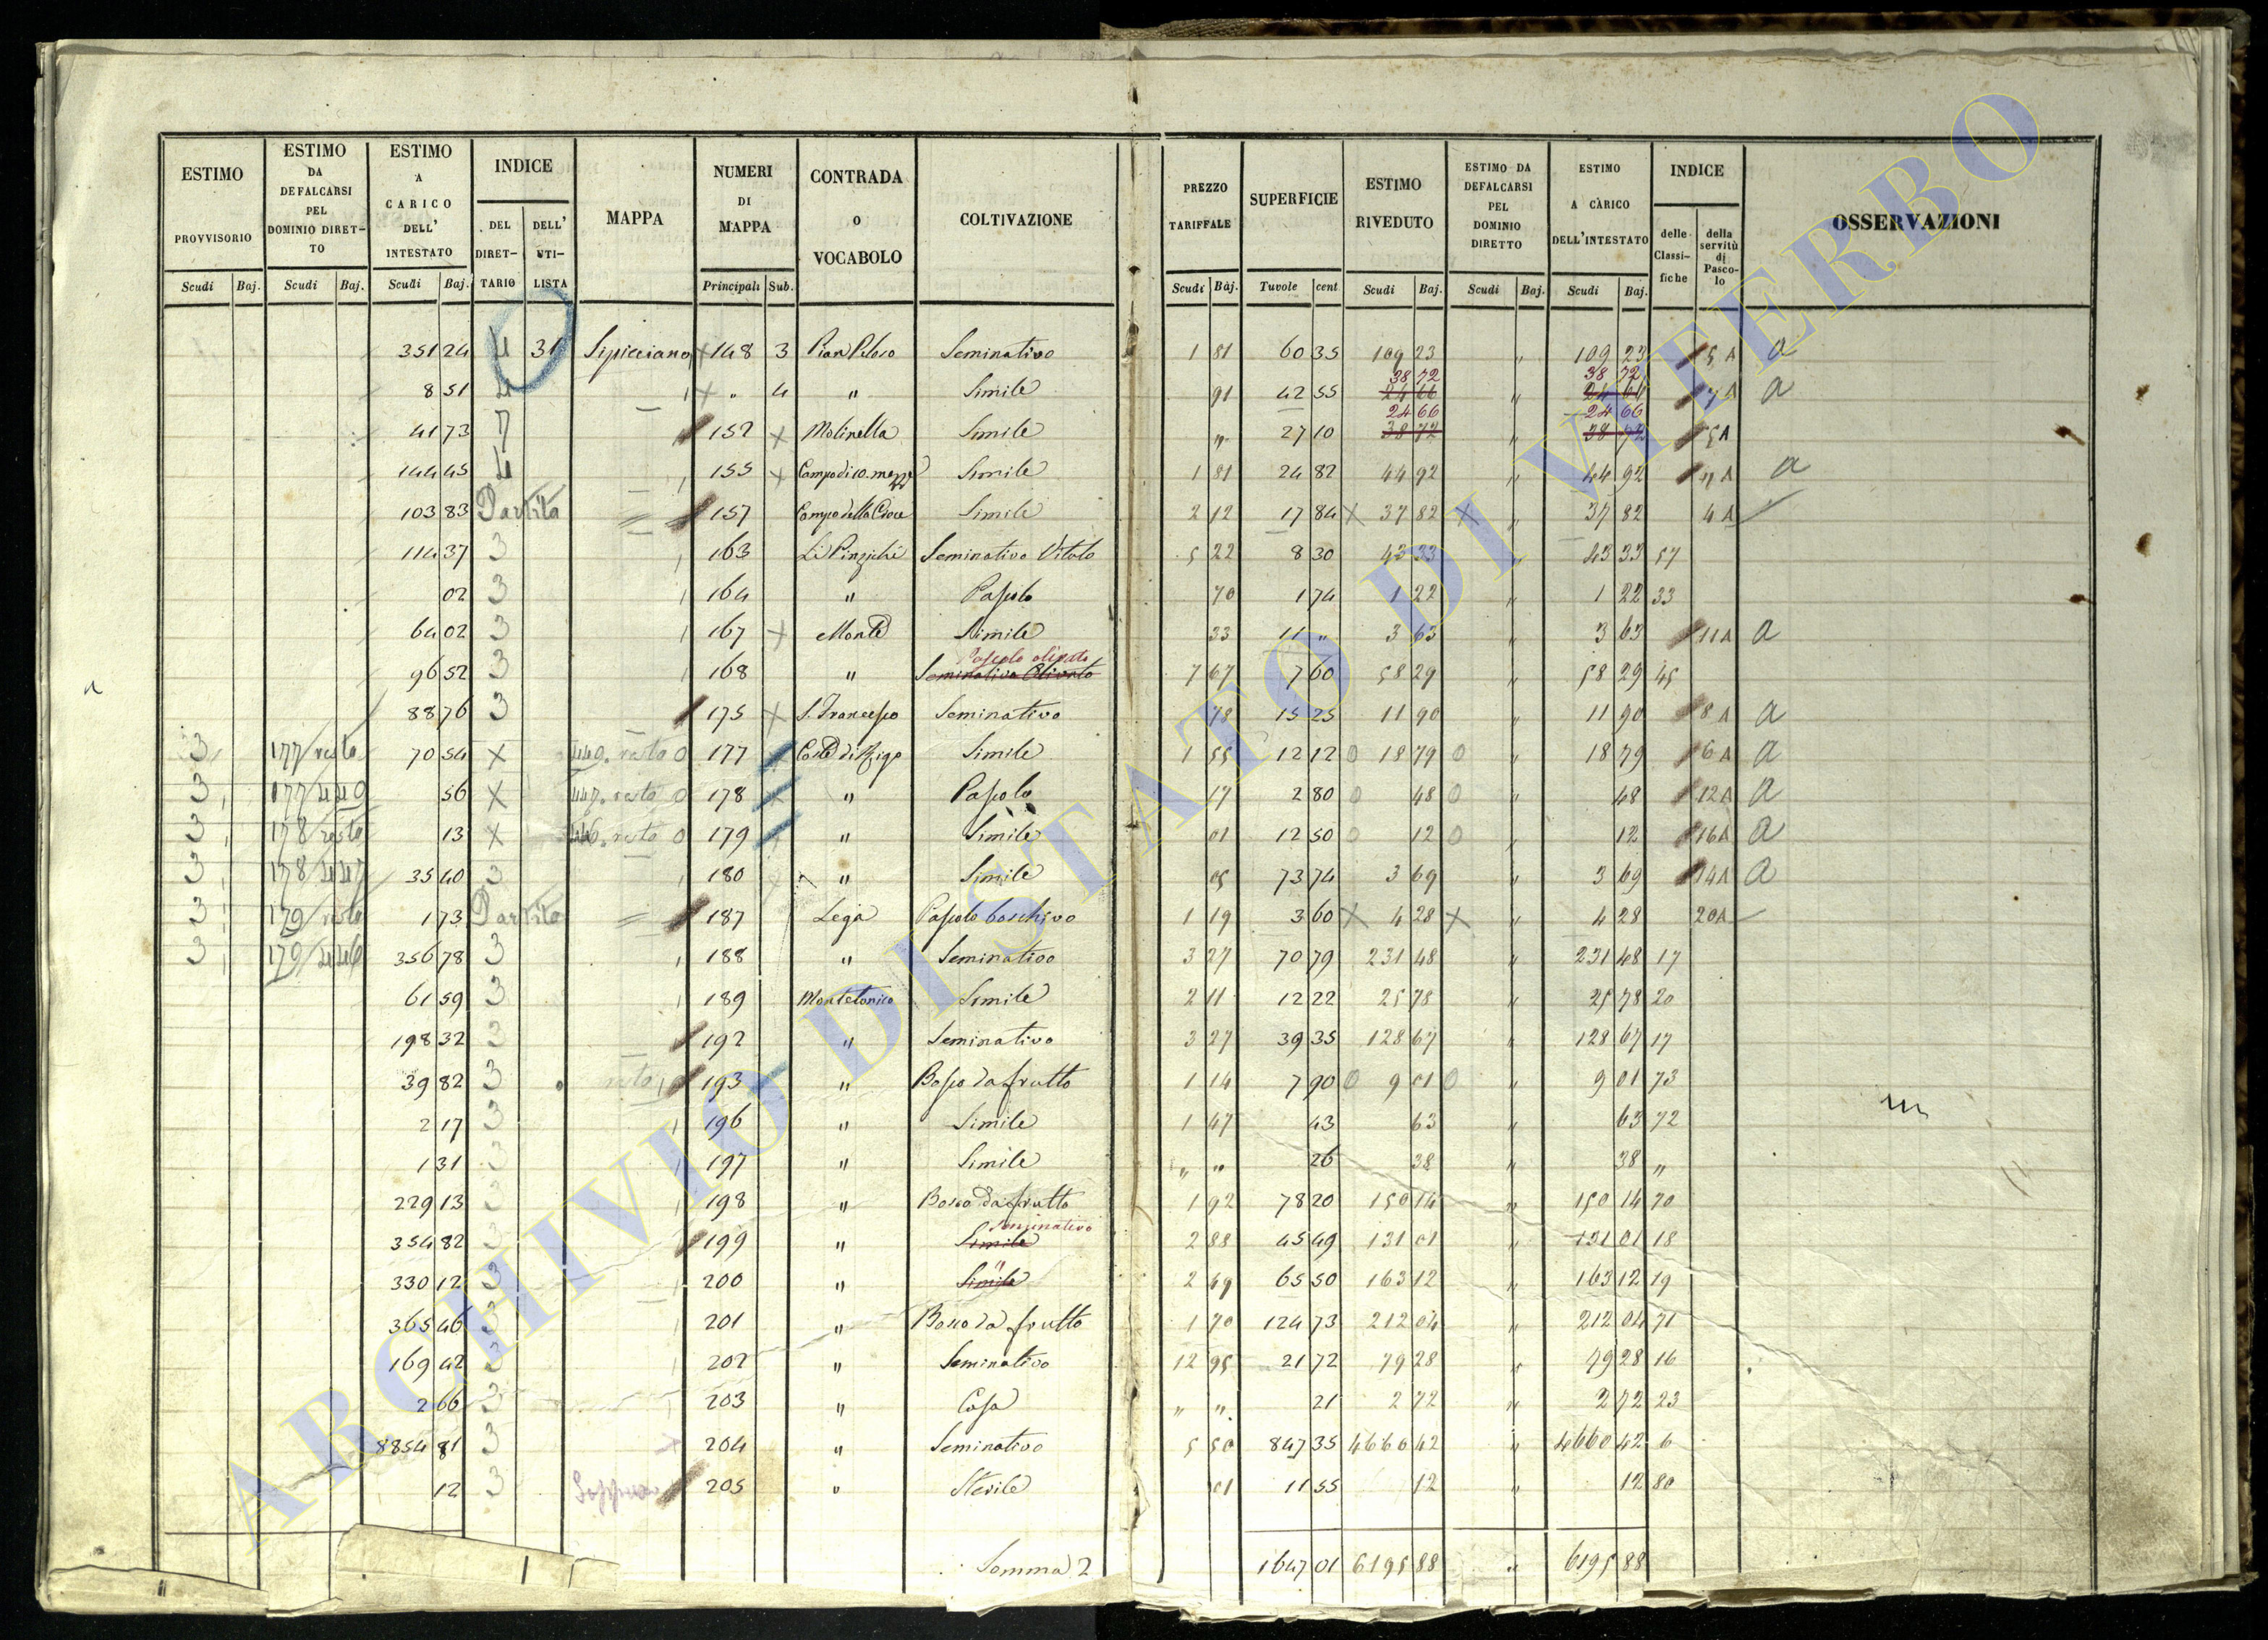 ESTIMO PROVVISORIO Scudi Baj. ESTIMO DA DEFALCARSI PEL DOMINIO DIRETTO Scudi Baj. ESTIMO A CARICO DELL' INTESTATO Scudi Baj. INDICE DEL DIRETTARIO DELL' UTILISTA MAPPA NUMERI DI MAPPA Principali Sub. CONTRADA O VOCABOLO COLTIVAZIONE PREZZO TARIFFALE Scudi Baj. SUPERFICIE Tuvole cent. ESTIMO RIVEDUTO Scudi Baj. ESTIMO DA DEFALCARSI PEL DOMINIO DIRETTO Scudi Baj. ESTIMO A CARICO DELL'INTESTATO Scudi Baj. INDICE delle Classifiche della servitù di Pascolo OSSERVAZIONI
351 24 4 31 Sipicciano 148 3 Simile Seminativo 1 81 60 35 109 23 " 109 23 5 A a
8 51 4 " 4 " Simile 91 42 55 38 72 24 66 " 38 72 24 66 7 A a
41 73 7 152 Molinella Simile " 27 10 24 66 38 72 " 24 66 38 72 5 A
144 45 4 155 Simile 1 81 24 82 44 92 " 44 92 " A a
103 83 Partita 157 Campo della Croce Simile 2 12 17 84 X 37 82 X " 37 82 4 A
114 37 3 163 Li Pinzichi Seminativo Vitato 5 22 8 30 43 33 " 43 33 57
02 3 164 " Pascolo 70 1 74 1 22 " 1 22 33
64 02 3 167 Monte Simile 33 11 " 3 63 " 3 63 11 A a
96 52 3 168 " Pascolo olivato Seminativo Olivato 7 67 7 60 58 29 " 58 29 45
88 76 3 175 S. Francesco Seminativo 78 15 25 11 90 " 11 90 8 A a
3 177 resto 70 54 X 449. resto 0 177 Simile 1 55 12 12 0 18 79 0 " 18 79 6 A a
3 177/449 56 X 447. resto 0 178 " Pascolo 17 2 80 0 48 0 " 48 12 A a
3 178/resto 13 X 446. resto 0 179 " Simile 01 12 50 0 12 0 " 12 16 A a
3 178/447 35 40 3 180 " Simile 05 73 74 3 69 " 3 69 14 A a
3 179/resto 1 73 Partita 187 Lega Pascolo boschivo 1 19 3 60 X 4 28 X " 4 28 20 A
3 179/446 356 78 3 188 " Seminativo 3 27 70 79 231 48 " 231 48 17
61 59 3 189 Montetonico Simile 2 11 12 22 25 78 " 25 78 20
198 32 3 192 " Seminativo 3 27 39 35 128 67 " 128 67 17
39 82 3 resto 193 " Bosco da frutto 1 14 7 90 0 9 01 0 " 9 01 73
2 17 3 196 " Simile 1 47 43 63 " 63 72
1 31 3 197 " Simile " " 26 38 " 38 "
229 13 3 198 " Bosco da frutto 1 92 78 20 150 14 " 150 14 70
354 82 3 199 " Seminativo Simile 2 88 45 49 131 01 " 131 01 18
330 12 3 200 " " Simile 2 49 65 50 163 12 " 163 12 19
365 46 3 201 " Bosco da frutto 1 70 124 73 212 04 " 212 04 71
169 42 3 202 " Seminativo 21 72 79 28 " 79 28 16
2 66 3 203 " Casa " " 21 2 72 " 2 72 23
8854 81 3 204 " Seminativo 5 50 847 35 4660 42 " 4660 42 6
12 3 205 " Sterile 01 11 55 12 " 12 80
Somma 2 1647 01 6195 88 " 6195 88
ARCHIVIO DI STATO DI VITERBO